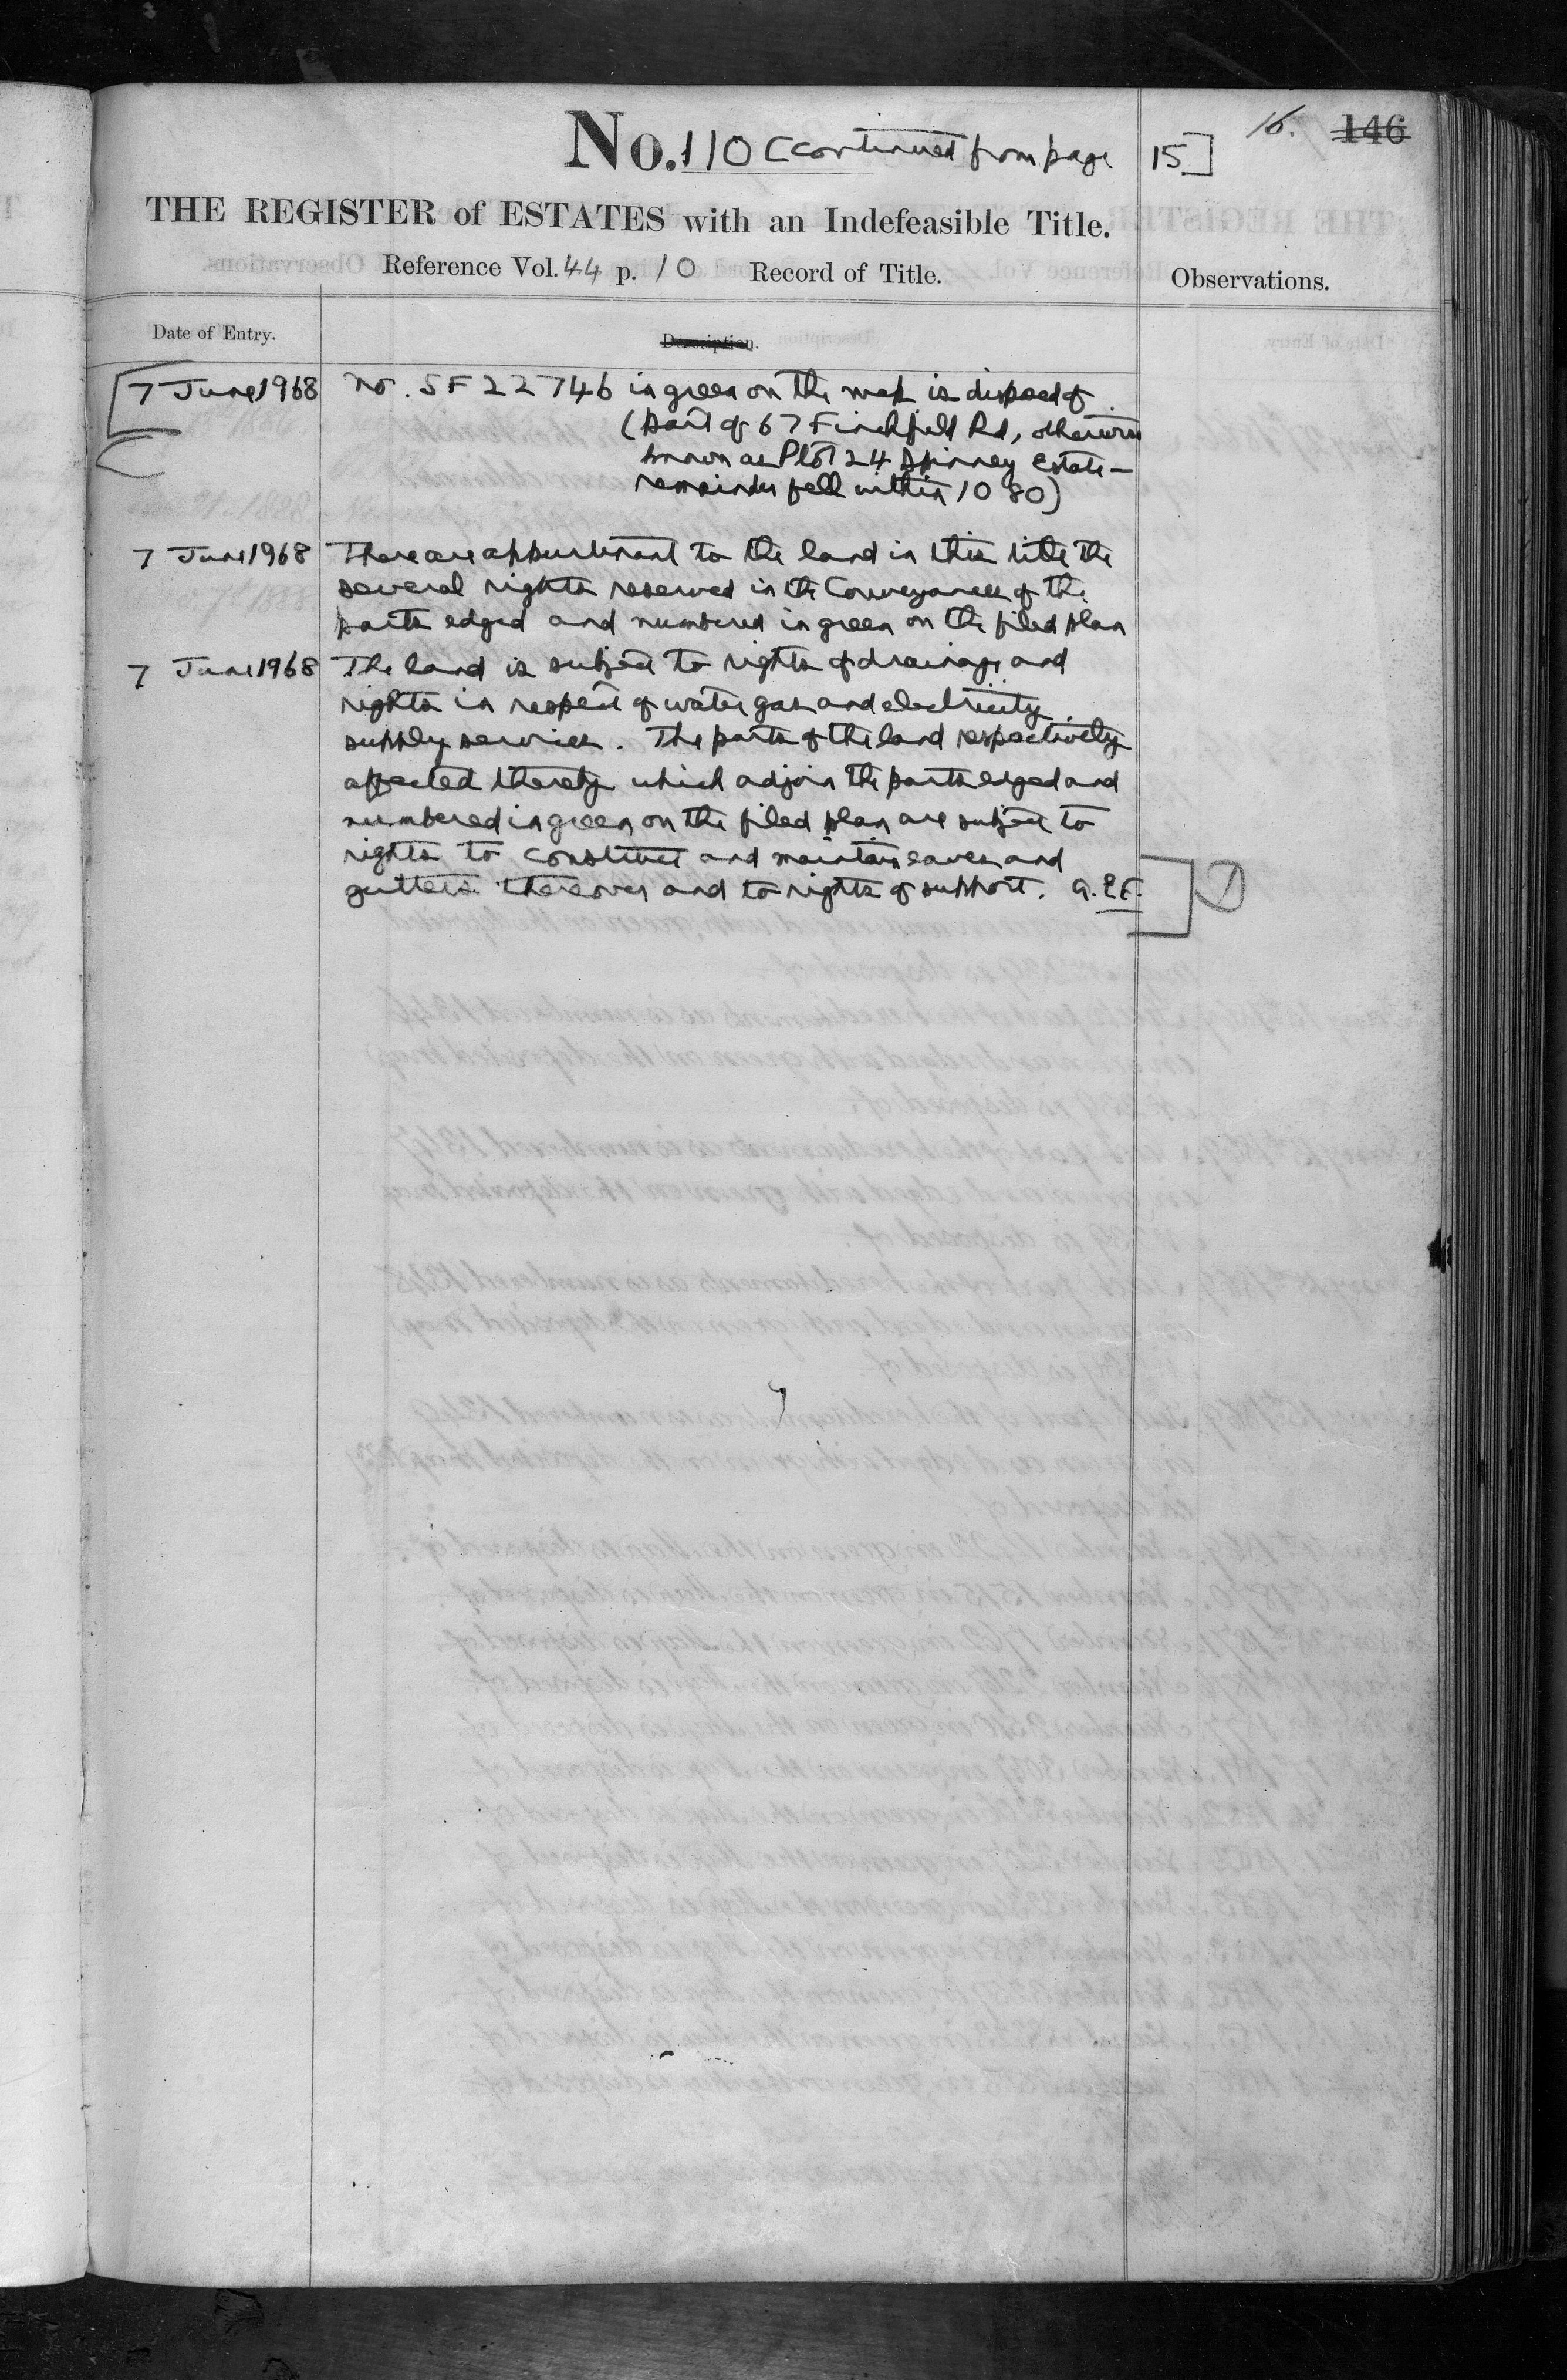 16. 146
No. 110 [continued from page 15]
THE REGISTER of ESTATES with an Indefeasible Title.
Reference Vol. 44 p. 10 Record of Title.
Observations.
Date of Entry.
Description.
7 June 1968 No. SF 22746 in green on the map is disposed of
(part of 67 Finchfield Rd, otherwise
known as Plot 24 Spinney Estate –
remainder fell within 1080)
7 June 1968 There are appurtenant to the land in this title the
several rights reserved in the Conveyances of the
parts edged and numbered in green on the filed plan
7 June 1968 The land is subject to rights of drainage and
rights in respect of water gas and electricity
supply services. The parts of the land respectively
affected thereby which adjoin the parts edged and
numbered in green on the filed plan are subject to
rights to construct and maintain eaves and
gutters thereover and to rights of support.
D